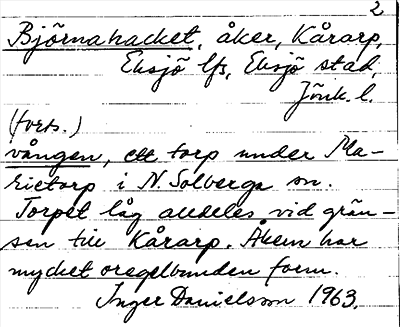 2
Björnahacket, åker, Kårarp,
Eksjö lfs, Eksjö stad,
Jönk. l.
(forts.)
vången, ett torp under Ma-
rietorp i N. Solberga sn.
Torpet låg alldeles vid grän-
sen till Kårarp. Åkern har
mycket oregelbunden form.
Inger Danielsson 1963.